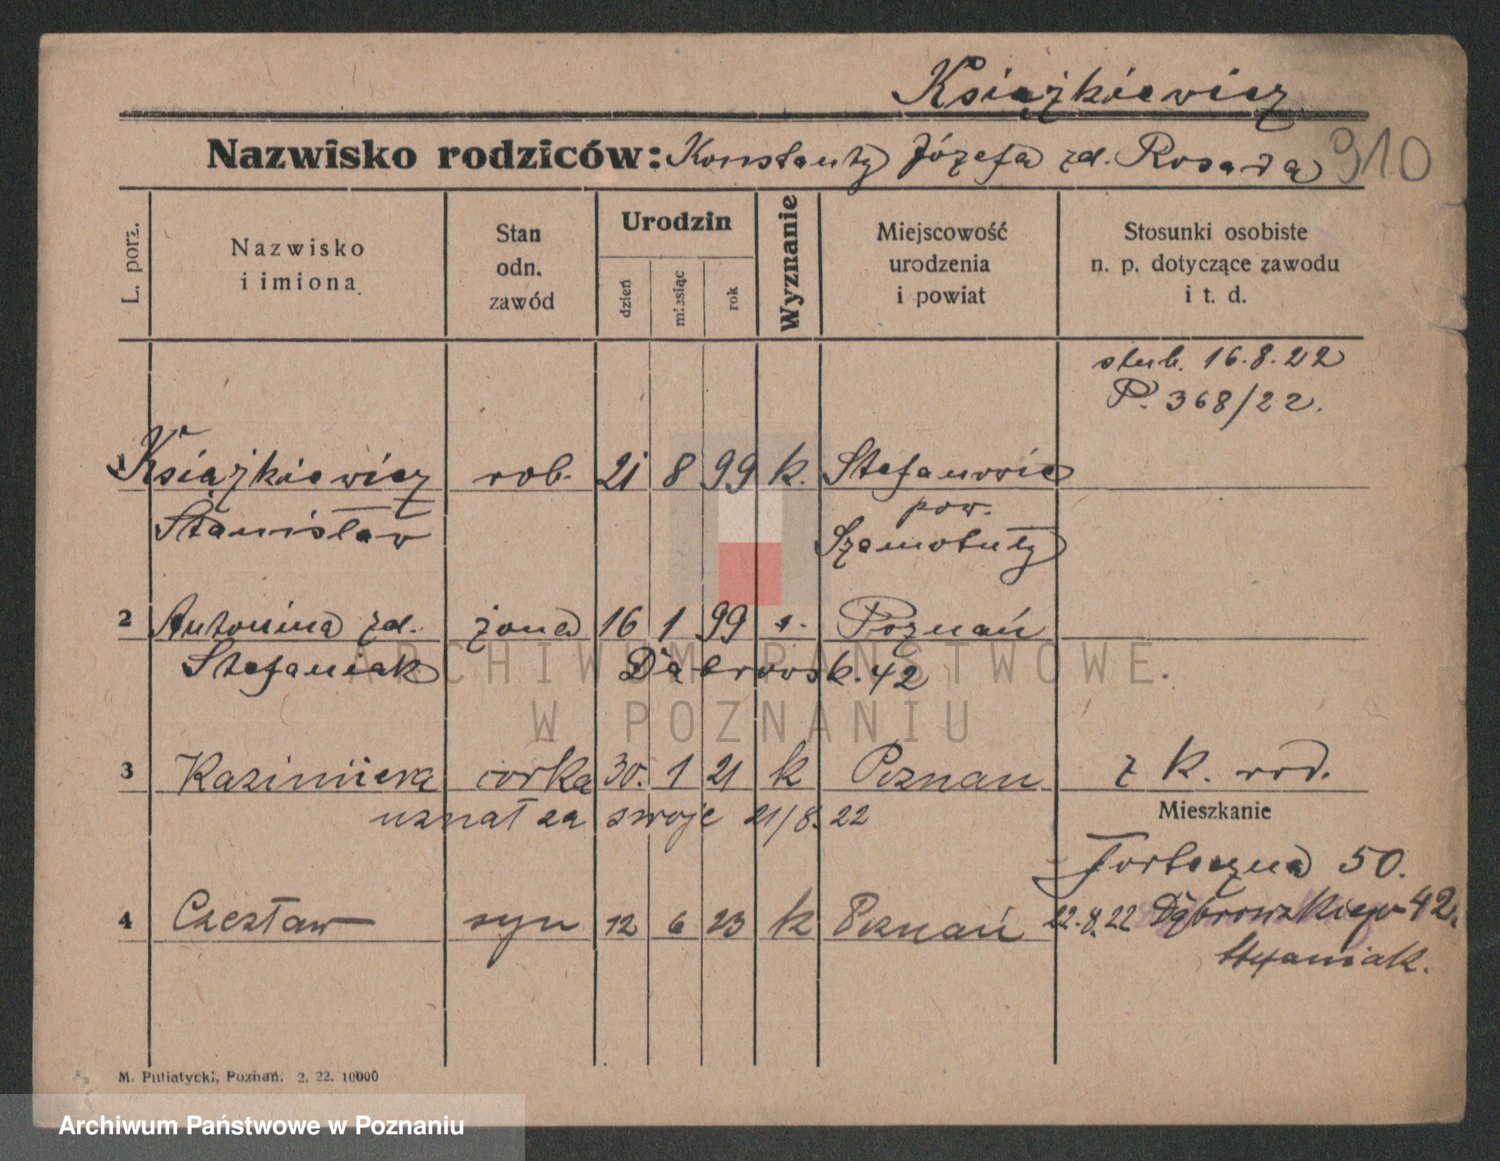 Książkiewicz
Nazwisko rodziców: Konstanty Józefa zd. Rosada 910
L. porz.
Nazwisko i imiona
Stan odn. zawód
Urodzin
dzień
miesiąc
rok
Wyznanie
Miejscowość urodzenia i powiat
Stosunki osobiste n. p. dotyczące zawodu i t. d.
ślub. 16.8.22
P. 368/22.
1 Książkiewicz rob. 21 8 99 k. Stefanowic
pow.
Stanisław Szamotuły
2 Antonina zd. żona 16 1 99 Poznań
Stefaniak Dąbrowsk. 42
ARCHIWUM PAŃSTWOWE
W POZNANIU
3 Kazimiera córka 30. 1 21 k Poznań z k. rod.
uznał za swoje 21/8.22
Mieszkanie
Forteczna 50.
4 Czesław syn 12 6 23 k Poznań 22.8.22 Dąbrowskiego 42.
Stefaniak.
M. Putiatycki, Poznań. 2. 22. 10000
Archiwum Państwowe w Poznaniu